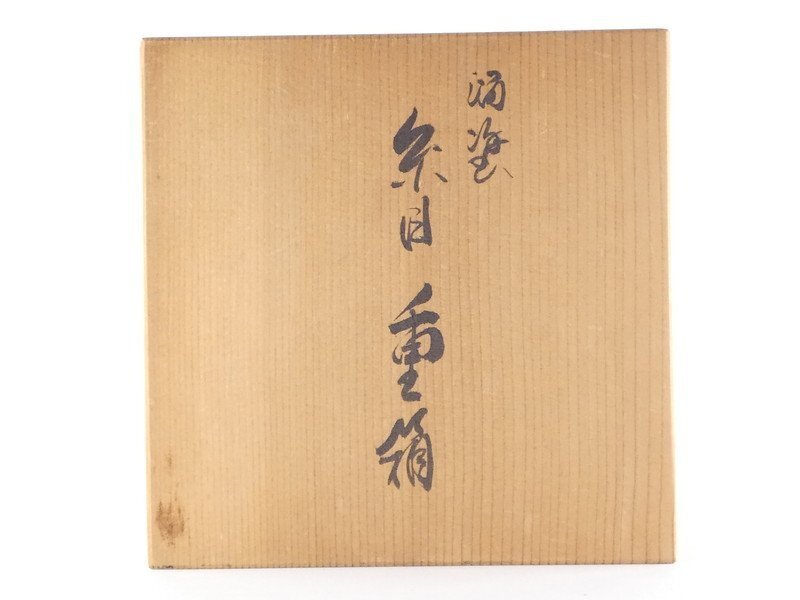 潤塗
糸目 重箱